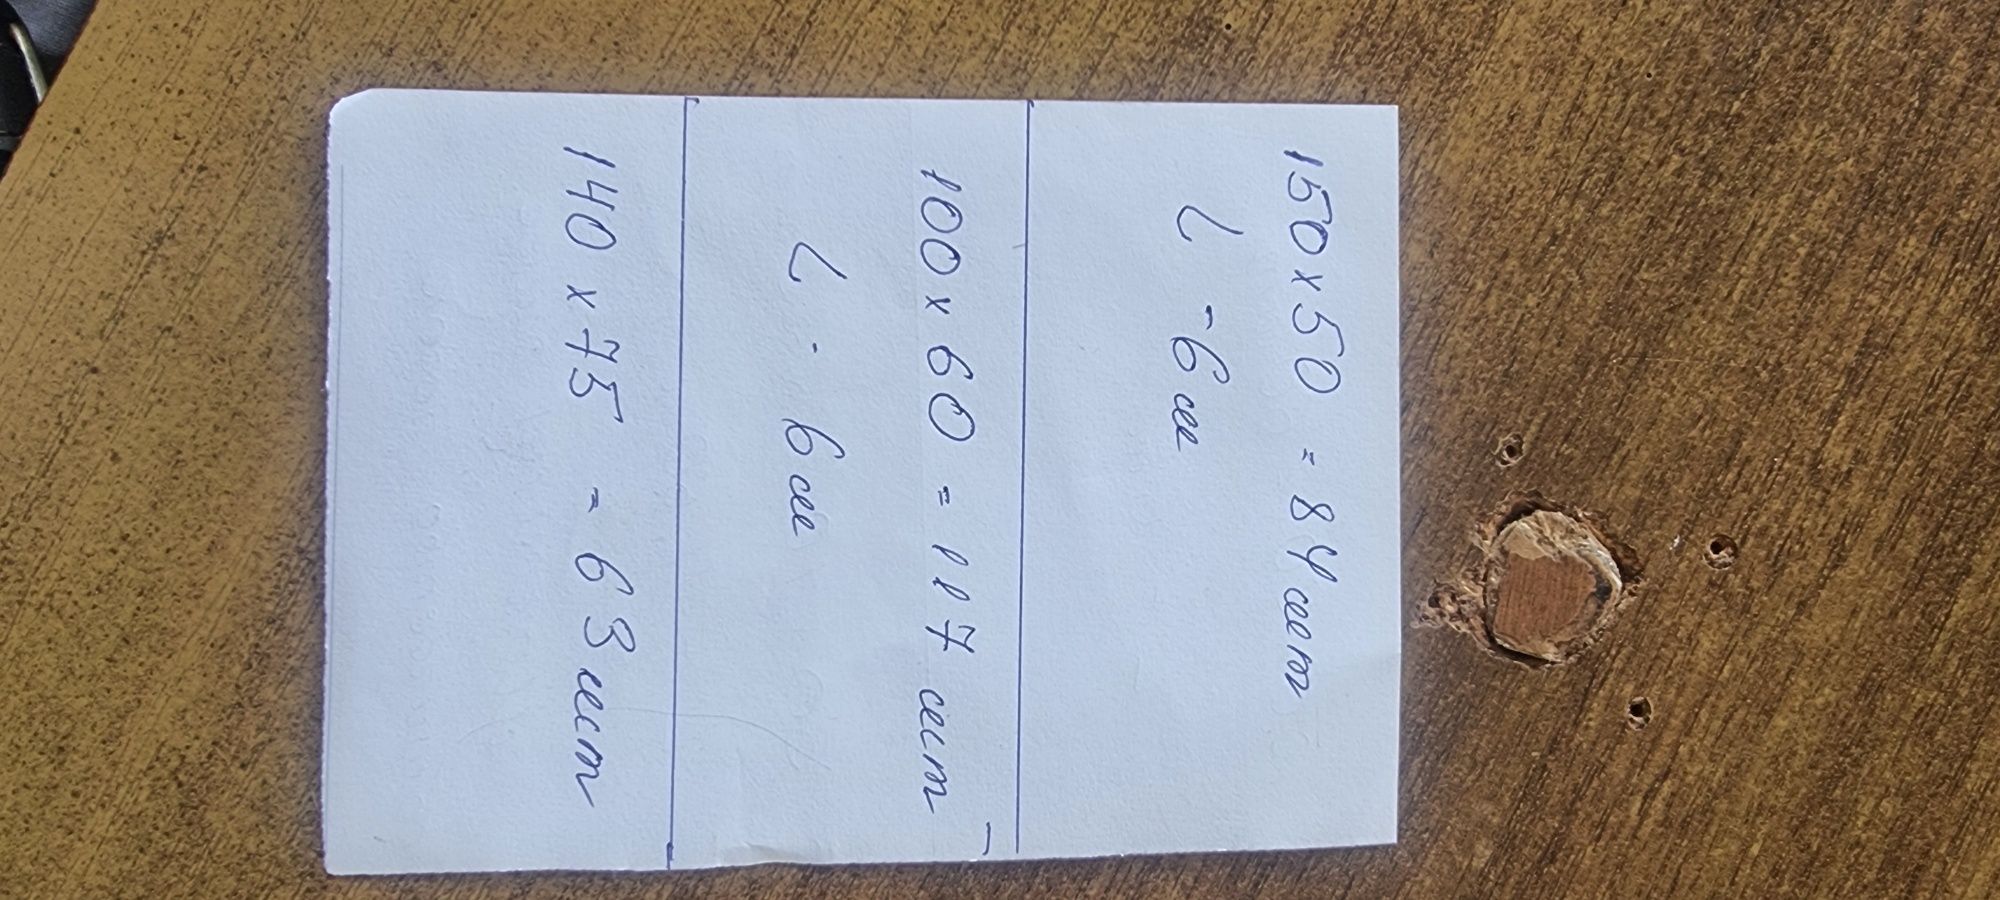 150 x 50 = 84 шт
L - 6 м
100 x 60 = 117 шт
L - 6 м
140 x 75 = 63 шт